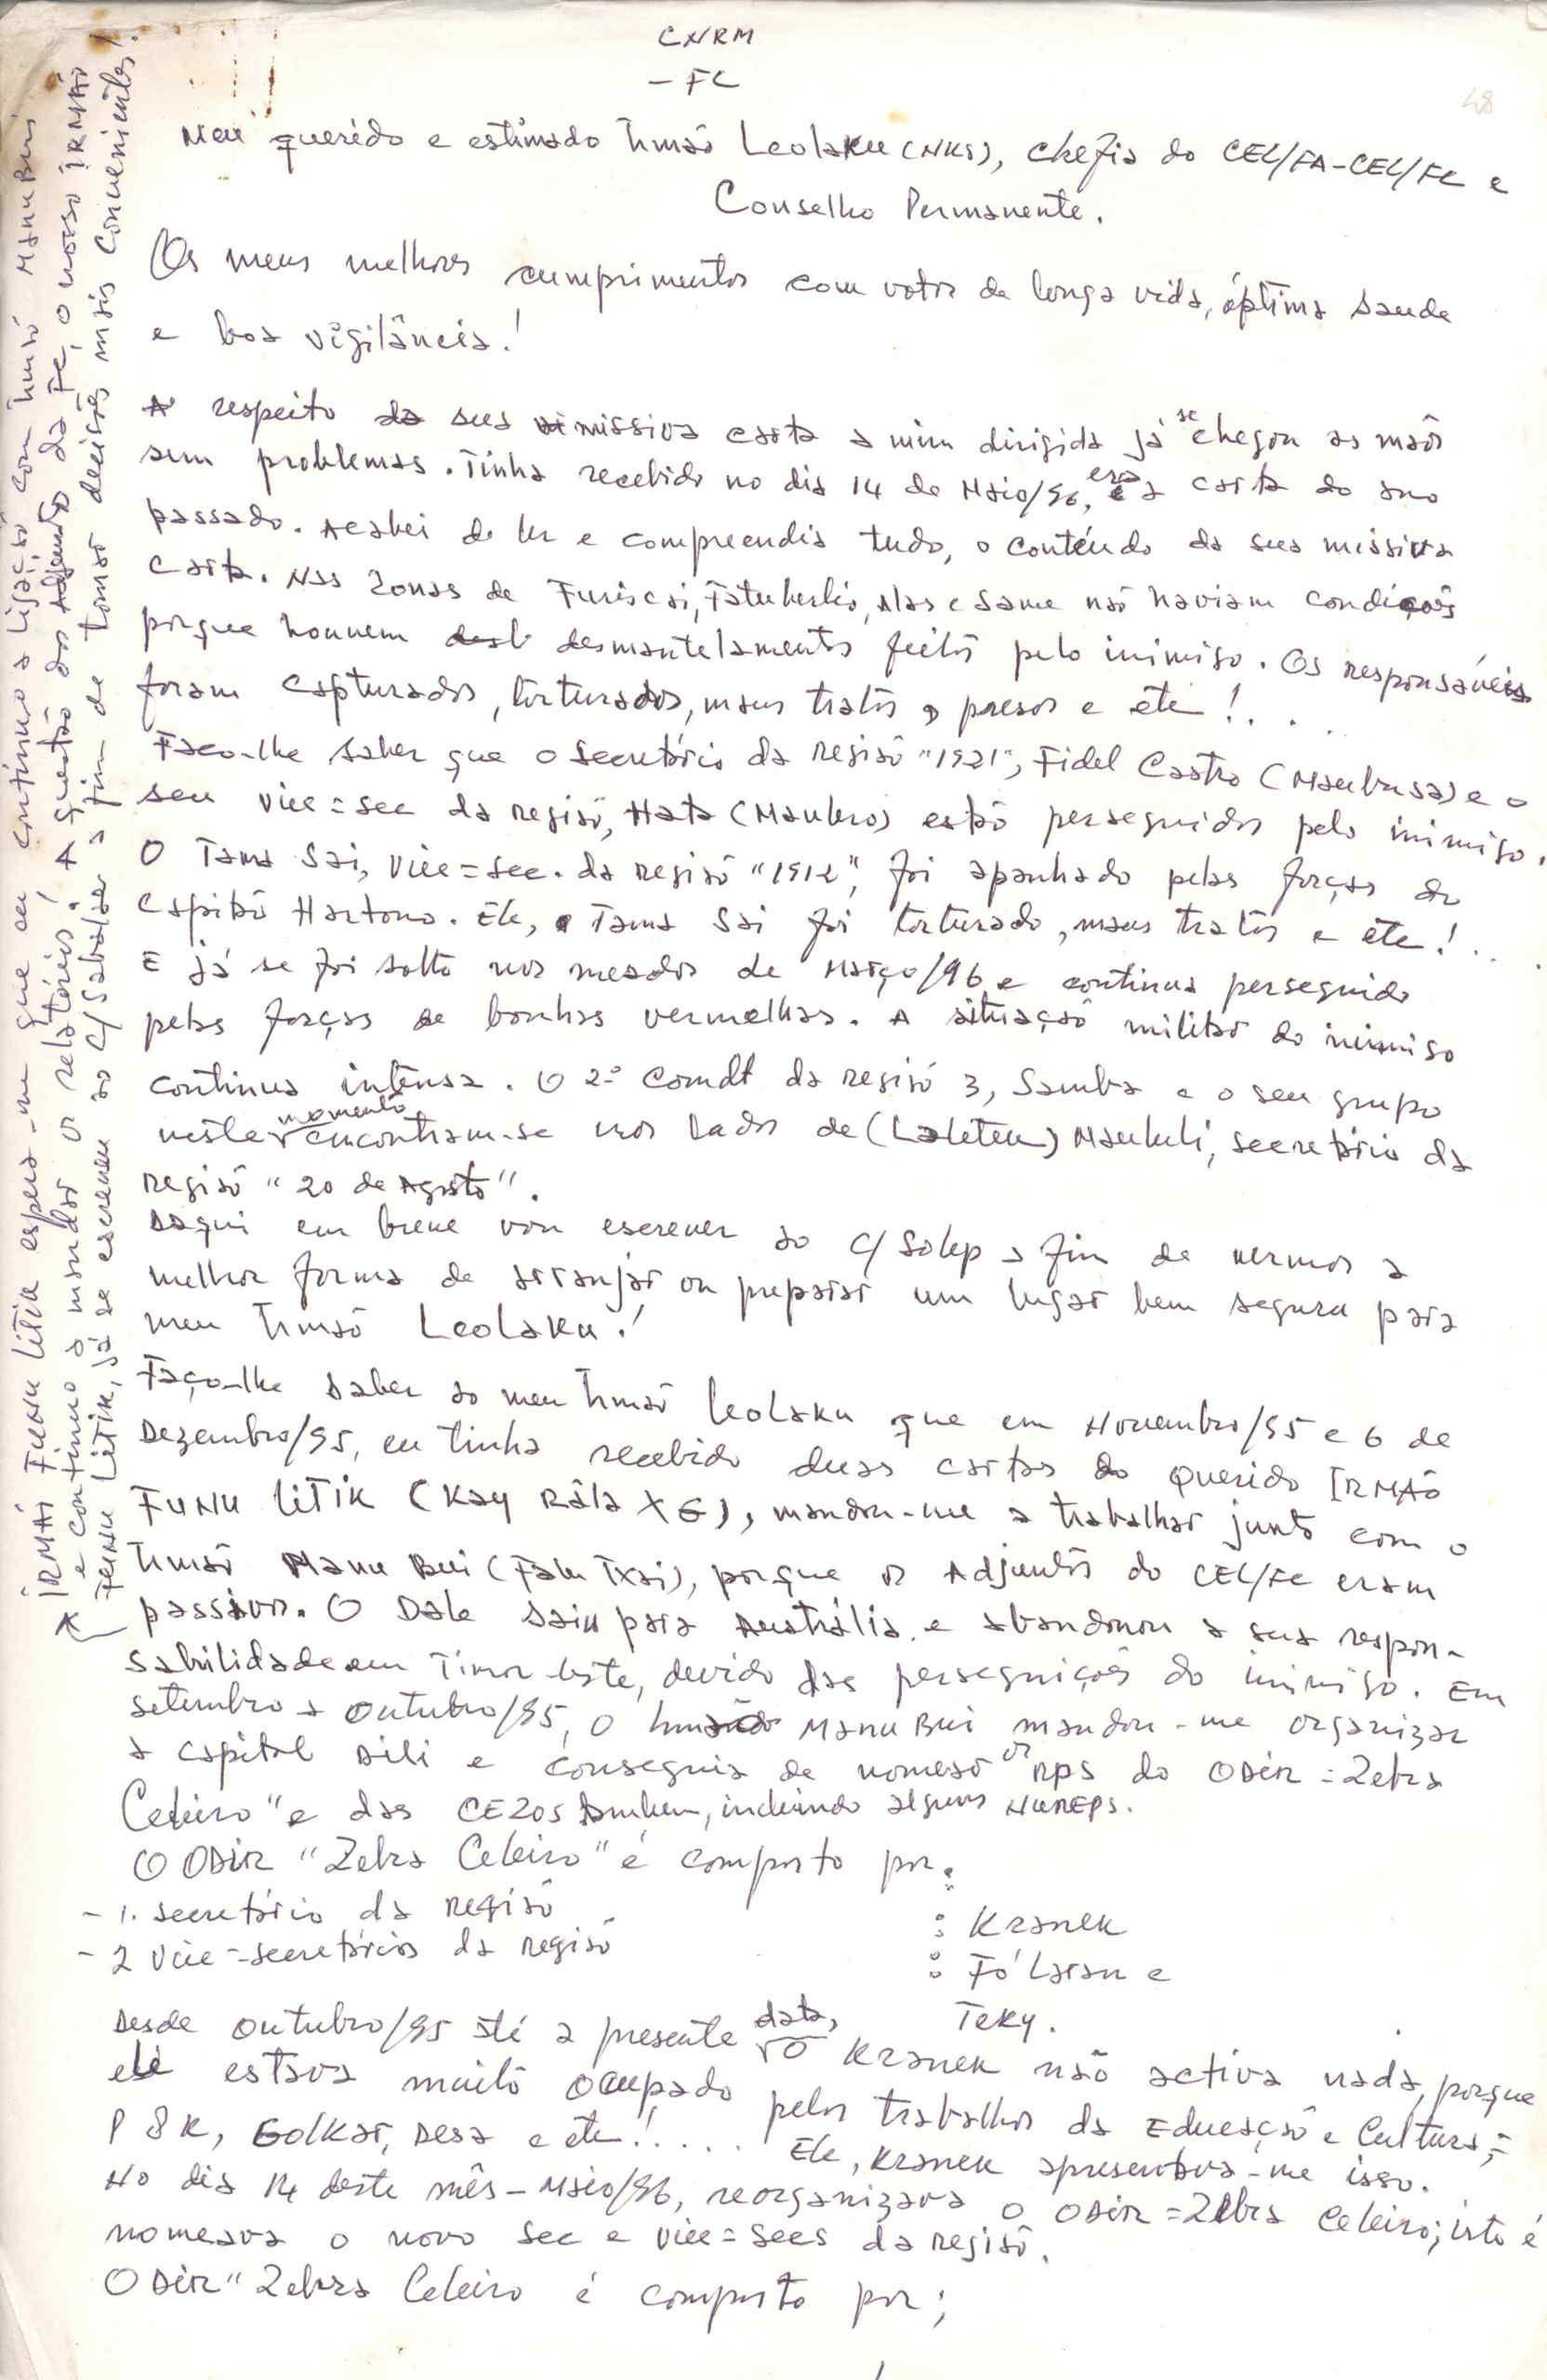 CNRM
- FC
48
Meu querido e estimado Irmaõ Leolaku (NKS), chefia do CEL/FA-CEL/FC e
Conselho Permanente.
Os meus melhores cumprimentos com votos de longa vida, óptima saude
e boa vigilância!
A respeito da sua missiva carta a mim dirigida já se chegou as maõs
sem problemas. Tinha recebido no dia 14 de Maio/96, era a carta do ano
passado. Acabei de ler e compreendia tudo, o contéudo da sua missiva
carta. Nas zonas de Turiscai, Fatuberlio, Alas e Same naõ haviam condiçoẽs
porque houvem desmantelamentos feitos pelo inimigo. Os responsáveis
foram capturados, torturados, maus tratos, presos e etc!...
Faço-lhe saber que o Secretário da Regiaõ "1921", Fidel Castro (Maubusa) e o
seu vice=sec da Regiaõ, Hata (Maubero) estaõ perseguidos pelo inimigo.
O Tama Sai, vice=sec. da Regiaõ "1912", foi apanhado pelas forças do
Capitaõ Hartono. Ele, o Tama Sai foi torturado, maus tratos e etc!...
E já se foi solto nos meados de Março/96 e continua perseguido
pelas forças de boinhas vermelhas. A situaçaõ militar do inimigo
continua intensa. O 2º Comdt da Regiaõ 3, Samba e o seu grupo
neste momento encontram-se nos lados de (Laletek) Maubuli, secretário da
Regiaõ "20 de Agosto".
Daqui em breve vou escrever ao C/ Solep a fim de vermos a
melhor forma de arranjar ou preparar um lugar bem segura para
meu Irmaõ Leolaku!
Faço-lhe saber ao meu Irmaõ Leolaku que em Novembro/95 e 6 de
Dezembro/95, eu tinha recebido duas cartas do querido IRMAÕ
FUNU LITIK (Kay Rala XG), mandou-me a trabalhar junto com o
Irmaõ Manu Bui (Falu Txai), porque os Adjuntos do CEL/FC eram
passivos. O Dale saiu para Austrália e abandonou a sua respon-
sabilidade em Timor Leste, devido das perseguiçoẽs do inimigo. Em
setembro a Outubro/95, o Irmaõ Manu Bui mandou-me organizar
a capital Dili e conseguia de nomear os RPS do ODIR=Zebra
Celeiro" e das CEZOs tambem, incluindo alguns NUREPs.
O ODIR "Zebra Celeiro" é composto por:
- 1. secretário da Regiaõ : Kranek
- 2 Vice-secretários da regiaõ : Fó Laran e
Teky.
Desde Outubro/95 até a presente data, o Kranek não activa nada, porque
ele estava muito ocupado pelos trabalhos da Educaçaõ e Cultura,=
P 8 K, Golkar, Desa e etc!..... Ele, Kranek apresentava-me isso.
No dia 14 deste mês-Maio/96, reorganizava o ODIR=Zebra Celeiro; isto é
nomeava o novo sec e vice=secs da regiaõ.
O Dir "Zebra Celeiro é composto por;
IRMAÕ FUNU LITIK espera-me que eu continuo a ligaçaõ com Irmaõ Manu Bui
e continuo a mandar os relatórios! A questão dos Adjuntos da FC, o nosso IRMAÕ
FUNU LITIK, já se escreveu ao C/ Sabalae a fim de tomar decisoẽs mais convenientes!